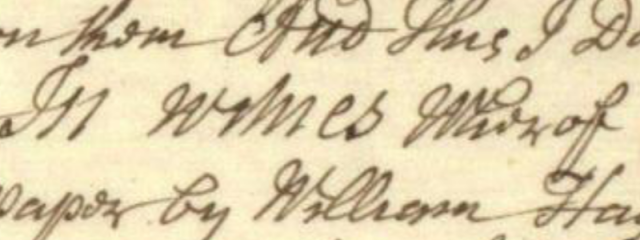 on them And this I Do
In Witnes Wherof
paper by William Ha